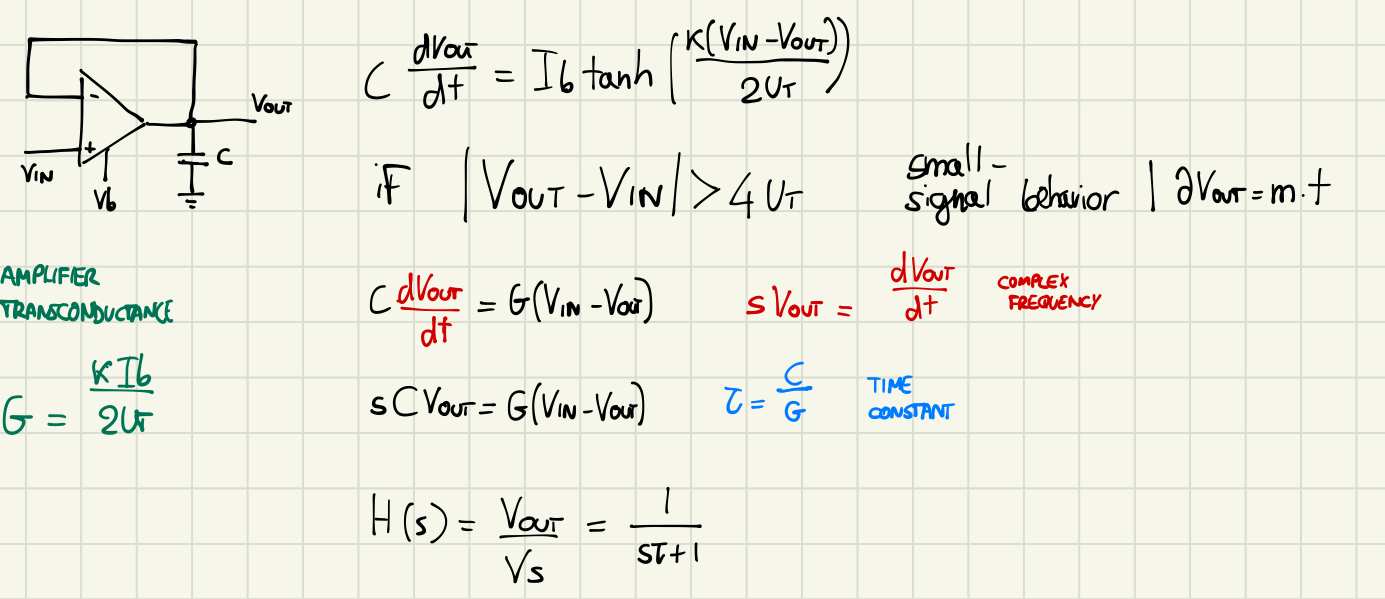 C dVout/dt = Ib tanh (K(VIN - VOUT)/2UT)
-
+
VOUT
C
VIN
Vb
iF |VOUT - VIN| > 4 UT
small-
signal behavior | ∂VOUT = m.t
AMPLIFIER
TRANSCONDUCTANCE
G = KIb/2UT
C dVOUT/dt = G(VIN - VOUT)
sVOUT = dVOUT/dt
COMPLEX
FREQUENCY
sCVOUT = G(VIN - VOUT)
τ = C/G
TIME
CONSTANT
H(s) = VOUT/Vs = 1/sτ+1